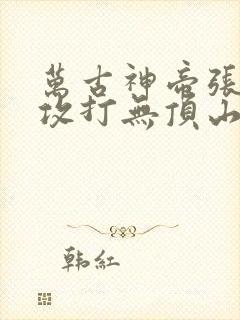 萬古神帝張
攻打無頂山
韩紅